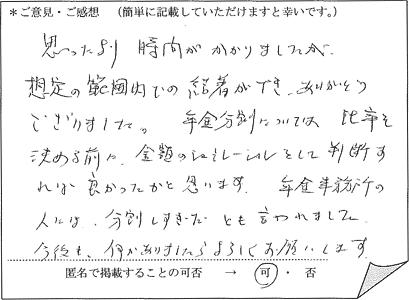 ＊ご意見・ご感想　（簡単に記載していただけますと幸いです。）
思ったより 時間が かかりましたが、
想定の範囲内での 結着ができ、ありがとう
ございました。 年金分割については、比率を
決める前に、金額のシュミレーションをして 判断す
れば 良かったかと思います。 年金事務所の
人には、分割しすぎだ とも 言われました。
今後も、何かありましたらよろしくお願いします。
匿名で掲載することの可否　→　可・否